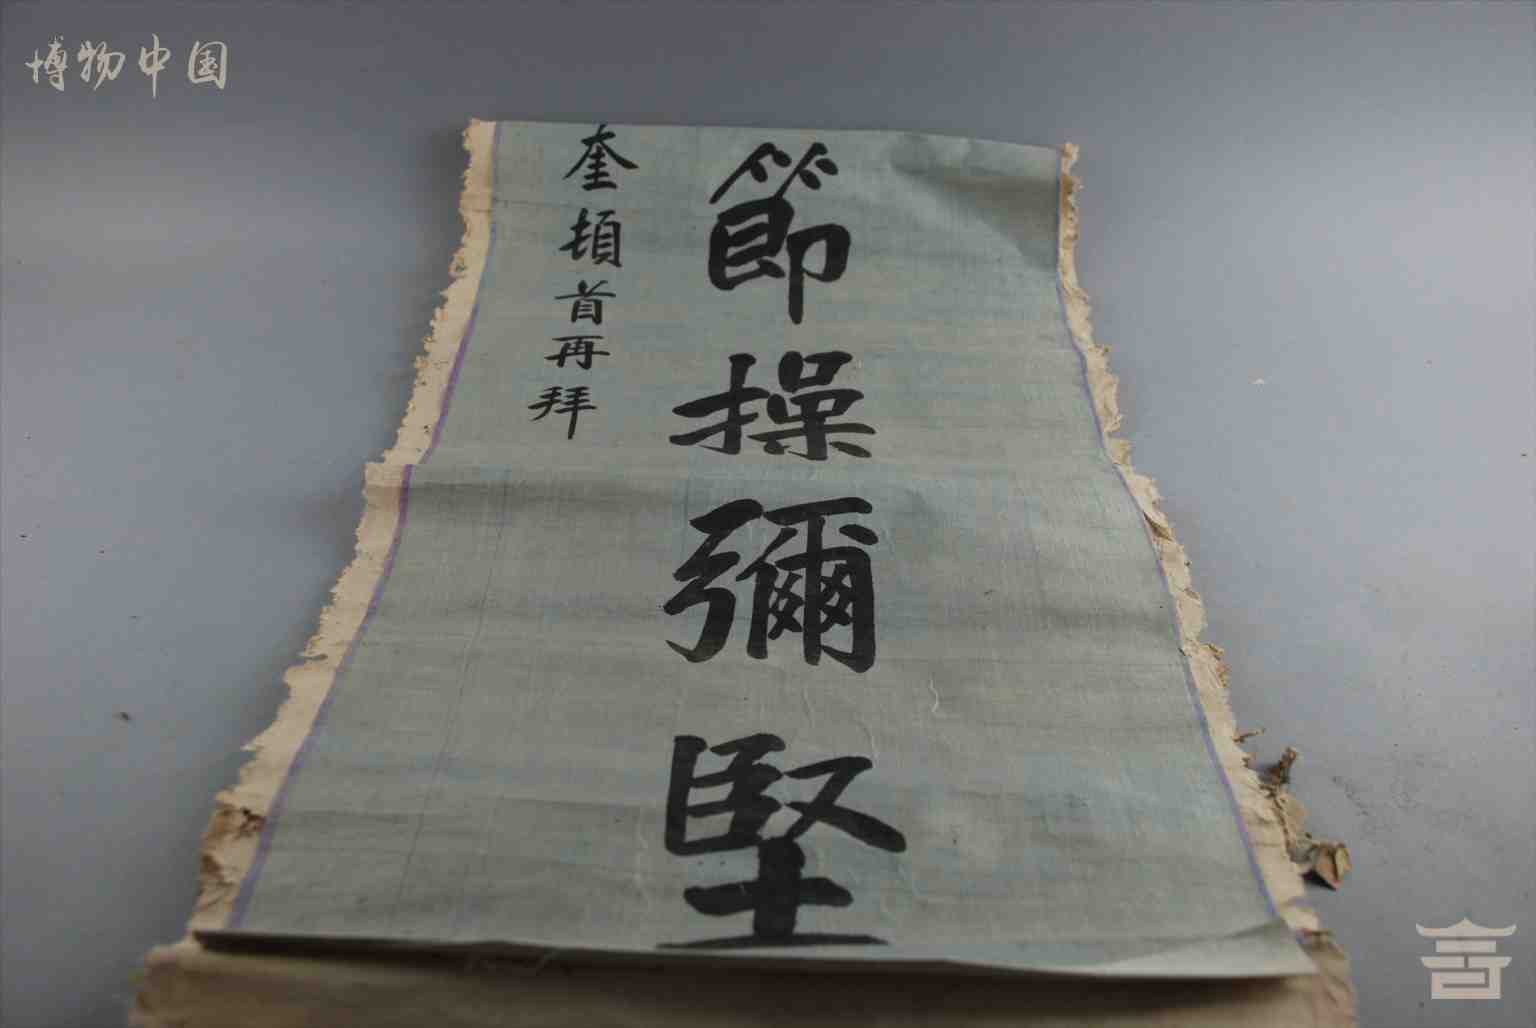 博物中国
節操彌堅
奎頓首再拜